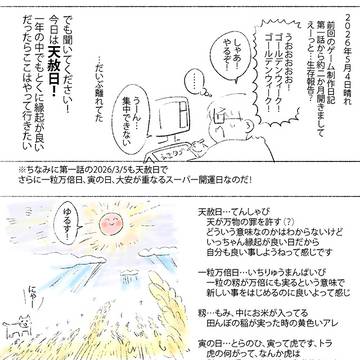 2026年5月4日晴れ
前回のゲーム制作日記
第一話から約二か月開きまして
えーっと…生存報告?
うおおおおお!
ゴールデンウィーク!
ゴールデンウィーク!
じゃあ!
やるぞ!
………
うーん…
集中できない
…だいぶ離れてた
でも聞いてください!
今日は天赦日!
一年の中でもとくに縁起が良い
だったらここはやって行きたい
※ちなみに第一話の2026/3/5も天赦日で
さらに一粒万倍日、寅の日、大安が重なるスーパー開運日なのだ!
ゆるす!
にゃー
天赦日…てんしゃび
天が万物の罪を許す(?)
どういう意味なのかはわからないけど
いっちゃん縁起が良い日だから
自分も良い事しようねって感じです
一粒万倍日…いちりゅうまんばいび
一粒の籾が万倍にも実るという意味で
新しい事をはじめるのに良いよって感じ
籾…もみ、中にお米が入ってる
田んぼの稲が実った時の黄色いアレ
寅の日…とらのひ、寅って虎です、トラ
虎の何がって、なんか虎は